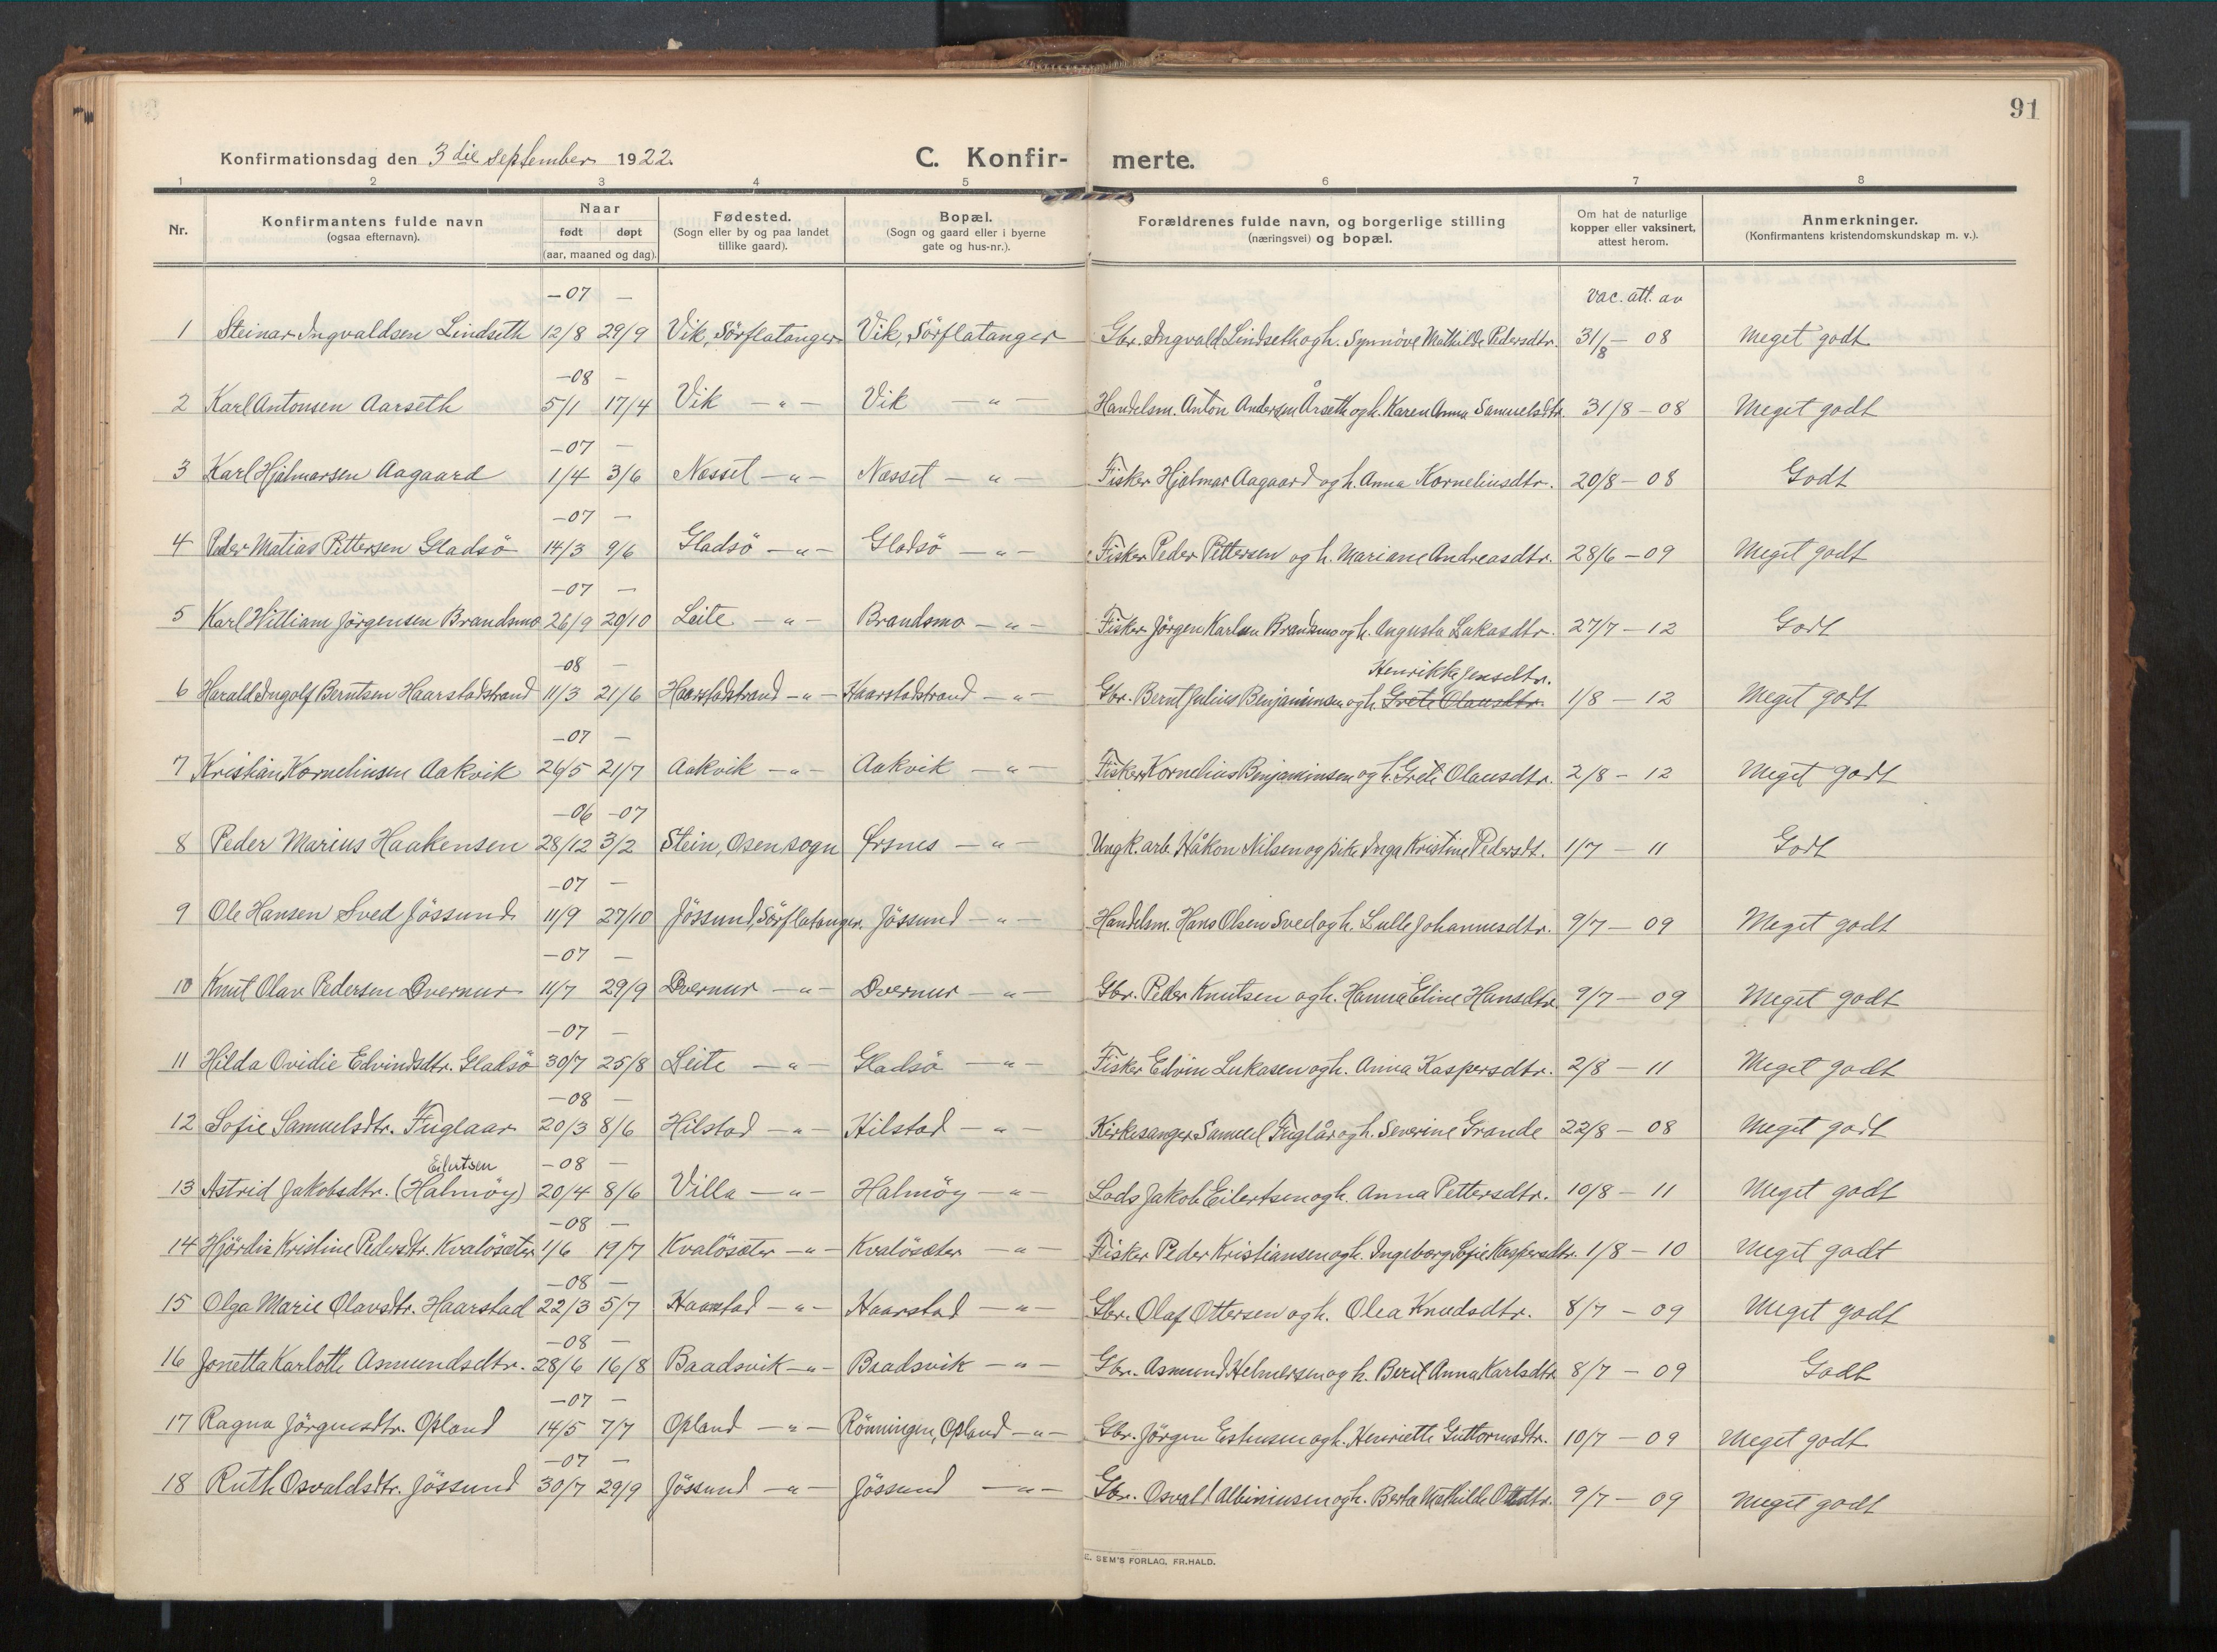 91
Konfirmationsdag den 3die september 1922.
C. Konfir- merte.
1 2 3 4 5 6 7 8
Nr. Konfirmantens fulde navn (ogsaa efternavn). Naar født døpt (aar, maaned og dag). Fødested. (Sogn eller by og paa landet tillike gaard). Bopæl. (Sogn og gaard eller i byerne gate og hus-nr.). Forældrenes fulde navn, og borgerlige stilling (næringsvei) og bopæl. Om hat de naturlige kopper eller vaksinert, attest herom. Anmerkninger. (Konfirmantens kristendomskundskap m. v.).
-07 — vac. att. av
1 Steinar Ingvaldsen Lindseth 12/8 29/9 Vik, Sörflatanger Vik, Sörflatanger Gbr. Ingvald Lindseth og h. Synnöve Mathilde Pedersdtr. 31/8 - 08 Meget godt
-08 —
2 Karl Antonsen Aarseth 5/1 17/4 Vik —"— Vik —"— Handelsm. Anton Andersen Årseth og h. Karen Anna Samuelsdtr. 31/8 - 08 Meget godt
-07 —
3 Karl Hjalmarsen Aagaard 1/4 3/6 Nesset —"— Nesset —"— Fisker Hjalmar Aagaard og h. Anna Korneliusdtr. 20/8 - 08 Godt
-07 —
4 Peder Matias Pettersen Gladsö 14/3 9/6 Gladsö —"— Gladsö —"— Fisker Peder Pettersen og h. Mariane Andreasdtr. 28/6 - 09 Meget godt
-07 —
5 Karl William Jörgensen Brandsmo 26/9 20/10 Leite —"— Brandsmo —"— Fisker Jörgen Karlsen Brandsmo og h. Augusta Lukasdtr. 27/7 - 12 Godt
-08 — Henrikke Jensdtr.
6 Harald Ingolf Berntsen Haarstadstrand 11/3 21/6 Haarstadstrand —"— Haarstadstrand —"— Gbr. Bernt Julius Benjaminsen og h. Grete Olausdtr. 1/8 - 12 Meget godt
-07 —
7 Kristian Korneliusen Aakvik 26/5 21/7 Aakvik —"— Aakvik —"— Fisker Kornelius Benjaminsen og h. Grete Olausdtr. 2/8 - 12 Meget godt
-06 -07
8 Peder Marius Haakensen 28/12 3/2 Stein, Osen sogn Örsnes —"— Ungk. arb. Håkon Nilsen og pike Inga Kristine Pedersdt. 1/7 - 11 Godt
-07 —
9 Ole Hansen Sved Jössund 11/9 27/10 Jössund, Sörflatanger. Jössund —"— Handelsm. Hans Olsen Sved og h. Lulle Johannesdtr. 9/7 - 09 Meget godt
-07 —
10 Knut Olav Pedersen Dvernur 11/7 29/9 Dvernur —"— Dvernur —"— Gbr. Peder Knutsen og h. Hanna Eline Hansdtr. 9/7 - 09 Meget godt
-07 —
11 Hilda Ovidie Edvindsdtr. Gladsö 30/7 25/8 Leite —"— Gladsö —"— Fisker Edvin Lukasen og h. Anna Kaspersdtr. 2/8 - 11 Meget godt
-08 —
12 Sofie Samuelsdtr. Fuglaar 20/3 8/6 Hilstad —"— Hilstad —"— Kirkesanger Samuel Fuglår og h. Severine Grande 22/8 - 08 Meget godt
Eilertsen -08 —
13 Astrid Jakobsdtr. (Halmöy) 20/4 8/6 Villa —"— Halmöy —"— Lods Jakob Eilertsen og h. Anna Pettersdtr. 10/8 - 11 Meget godt
-08 —
14 Hjördis Kristine Pedersdtr. Kvalösæter 1/6 19/7 Kvalösæter —"— Kvalösæter —"— Fisker Peder Kristiansen og h. Ingeborg Sofie Kaspersdtr. 1/8 - 10 Meget godt
-08 —
15 Olga Marie Olavsdtr. Haarstad 22/3 5/7 Haarstad —"— Haarstad —"— Gbr. Olaf Ottersen og h. Olea Knudsdtr. 8/7 - 09 Meget godt
-08 —
16 Jonetta Karlotte Asmundsdtr. 28/6 16/8 Baadsvik —"— Baadsvik —"— Gbr. Asmund Helmersen og h. Beret Anna Karlsdtr 8/7 - 09 Godt
-07 —
17 Ragna Jörgensdtr. Opland 14/5 7/7 Opland —"— Rönningen, Opland —"— Gbr. Jörgen Eshusen og h. Henriette Guttormsdtr. 10/7 - 09 Meget godt
-07 —
18 Ruth Osvaldsdtr. Jössund 30/7 29/9 Jössund —"— Jössund —"— Gbr. Osvald Albiniusen og h. Berta Mathilde Ottdtr. 9/7 - 09 Meget godt
E. SEM'S FORLAG, FR.HALD.